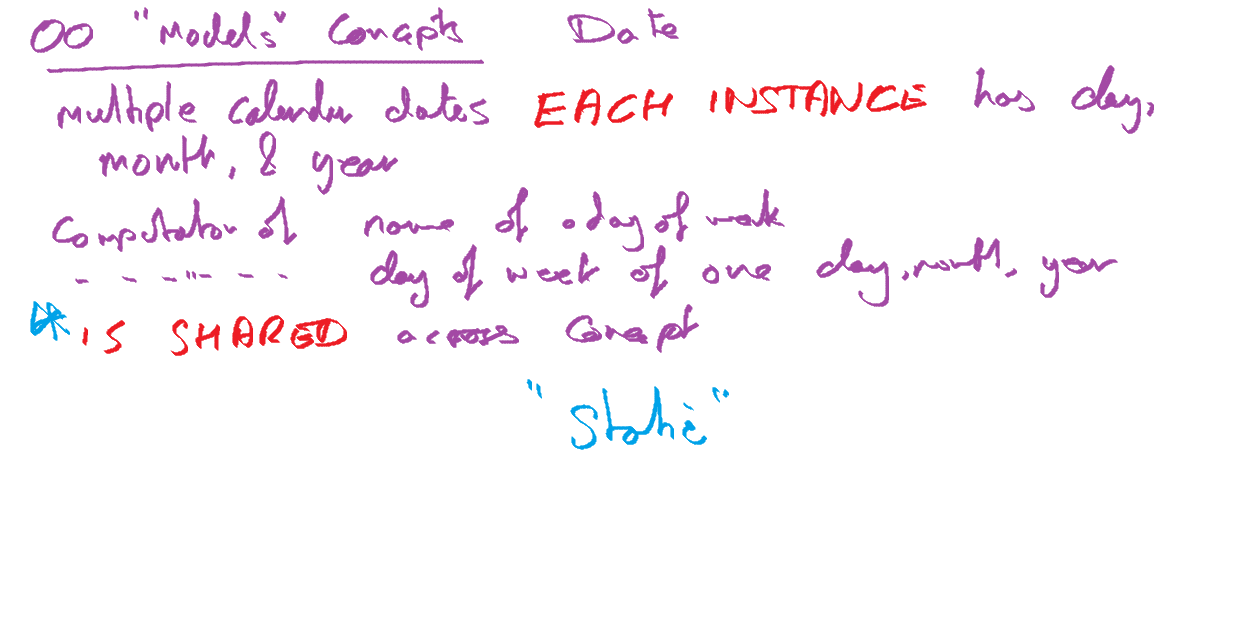 OO "Models" Concepts Date
multiple calendar dates EACH INSTANCE has day,
month, & year
Computation of name of a day of week
- - - " - - - day of week of one day, month, year
* IS SHARED across Concept
"Static"